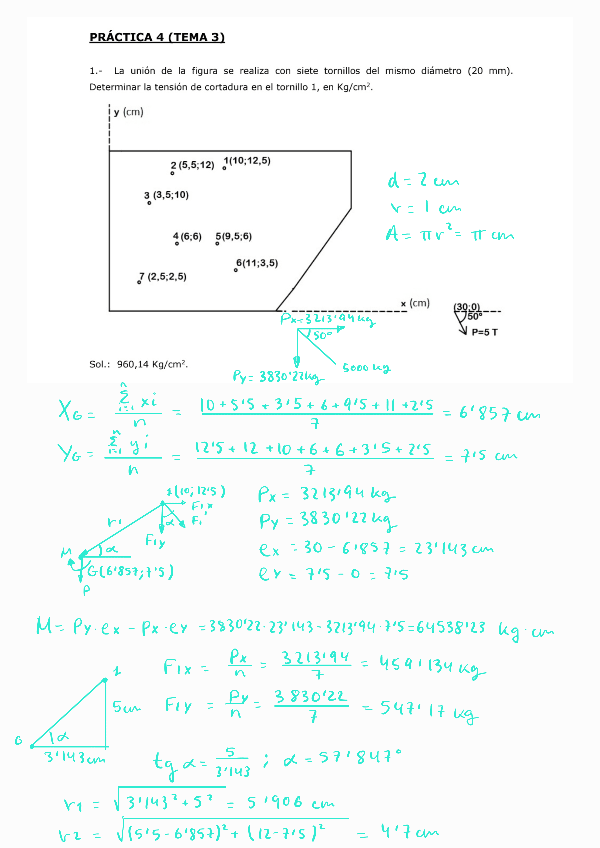 PRÁCTICA 4 (TEMA 3)
1.- La unión de la figura se realiza con siete tornillos del mismo diámetro (20 mm).
Determinar la tensión de cortadura en el tornillo 1, en Kg/cm².
y (cm)
2 (5,5;12)
1(10;12,5)
3 (3,5;10)
4 (6;6)
5(9,5;6)
6(11;3,5)
7 (2,5;2,5)
x (cm)
(30;0)
50º
P=5 T
d = 2 cm
r = 1 cm
A = πr² = π cm
Px=3213'94 kg
50°
5000 kg
Py = 3830'22kg
Sol.: 960,14 Kg/cm².
XG = Σ xi / n = 10 + 5'5 + 3'5 + 6 + 9'5 + 11 + 2'5 / 7 = 6'857 cm
YG = Σ yi / n = 12'5 + 12 + 10 + 6 + 6 + 3'5 + 2'5 / 7 = 7'5 cm
1(10;12'5)
F1x
F1
r1
α
F1y
M
α
G(6'857;7'5)
P
Px = 3213'94 kg
Py = 3830'22 kg
ex = 30 - 6'857 = 23'143 cm
ey = 7'5 - 0 = 7'5
M = Py·ex - Px·ey = 3830'22·23'143 - 3213'94·7'5 = 64538'23 kg·cm
F1x = Px / n = 3213'94 / 7 = 459'134 kg
1
5cm
F1y = Py / n = 3830'22 / 7 = 547'17 kg
G
α
3'143cm
tg α = 5 / 3'143 ; α = 57'847°
r1 = √3'143² + 5² = 5'906 cm
r2 = √(5'5 - 6'857)² + (12 - 7'5)² = 4'7cm